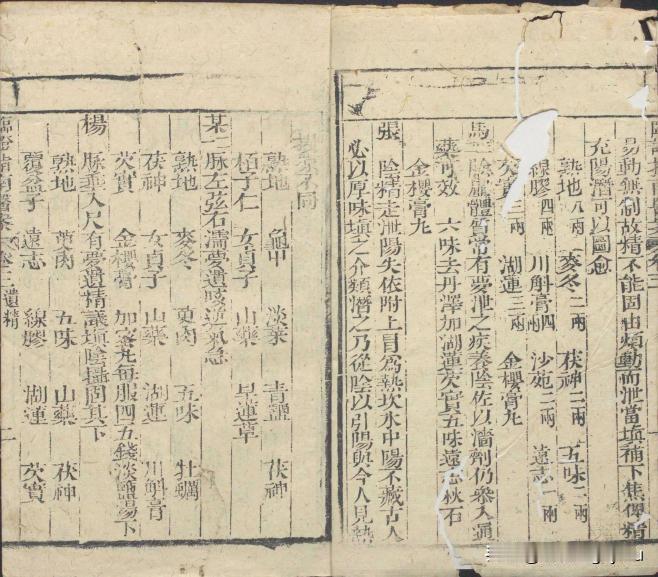 易動無制故精不能固由煩動而泄當填補下焦俾精
充陽潛可以圖愈
熟地八兩 麥冬二兩 茯神二兩 五味二兩
線膠四兩 川斛膏四 沙苑二兩 遠志一兩
芡實三兩 湖蓮三兩 金櫻膏丸
馬 陰虛體質常有夢泄之疾養陰佐以濇劑仍參入通
藥可效 六味去丹澤加湖蓮芡實五味遠志秋石
金櫻膏丸
張 陰精走泄陽失依附上冒為熱坎水中陽不藏古人
必以厚味填之介類潛之乃從陰以引陽與今人見熱
投涼不同
熟地 龜甲 淡菜 青鹽 茯神
柏子仁 女貞子 山藥 旱蓮草
某 脈左弦右濡夢遺咳逆氣急
熟地 麥冬 萸肉 五味 牡蠣
茯神 女貞子 山藥 湖蓮 川斛膏
芡實 金櫻膏 加蜜丸每服四五錢淡鹽湯下
楊 脈垂入尺有夢遺精議填陰攝固其下
熟地 萸肉 五味 山藥 茯神
覆盆子 遠志 線膠 湖蓮 芡實
臨證指南醫案 卷三 遺精